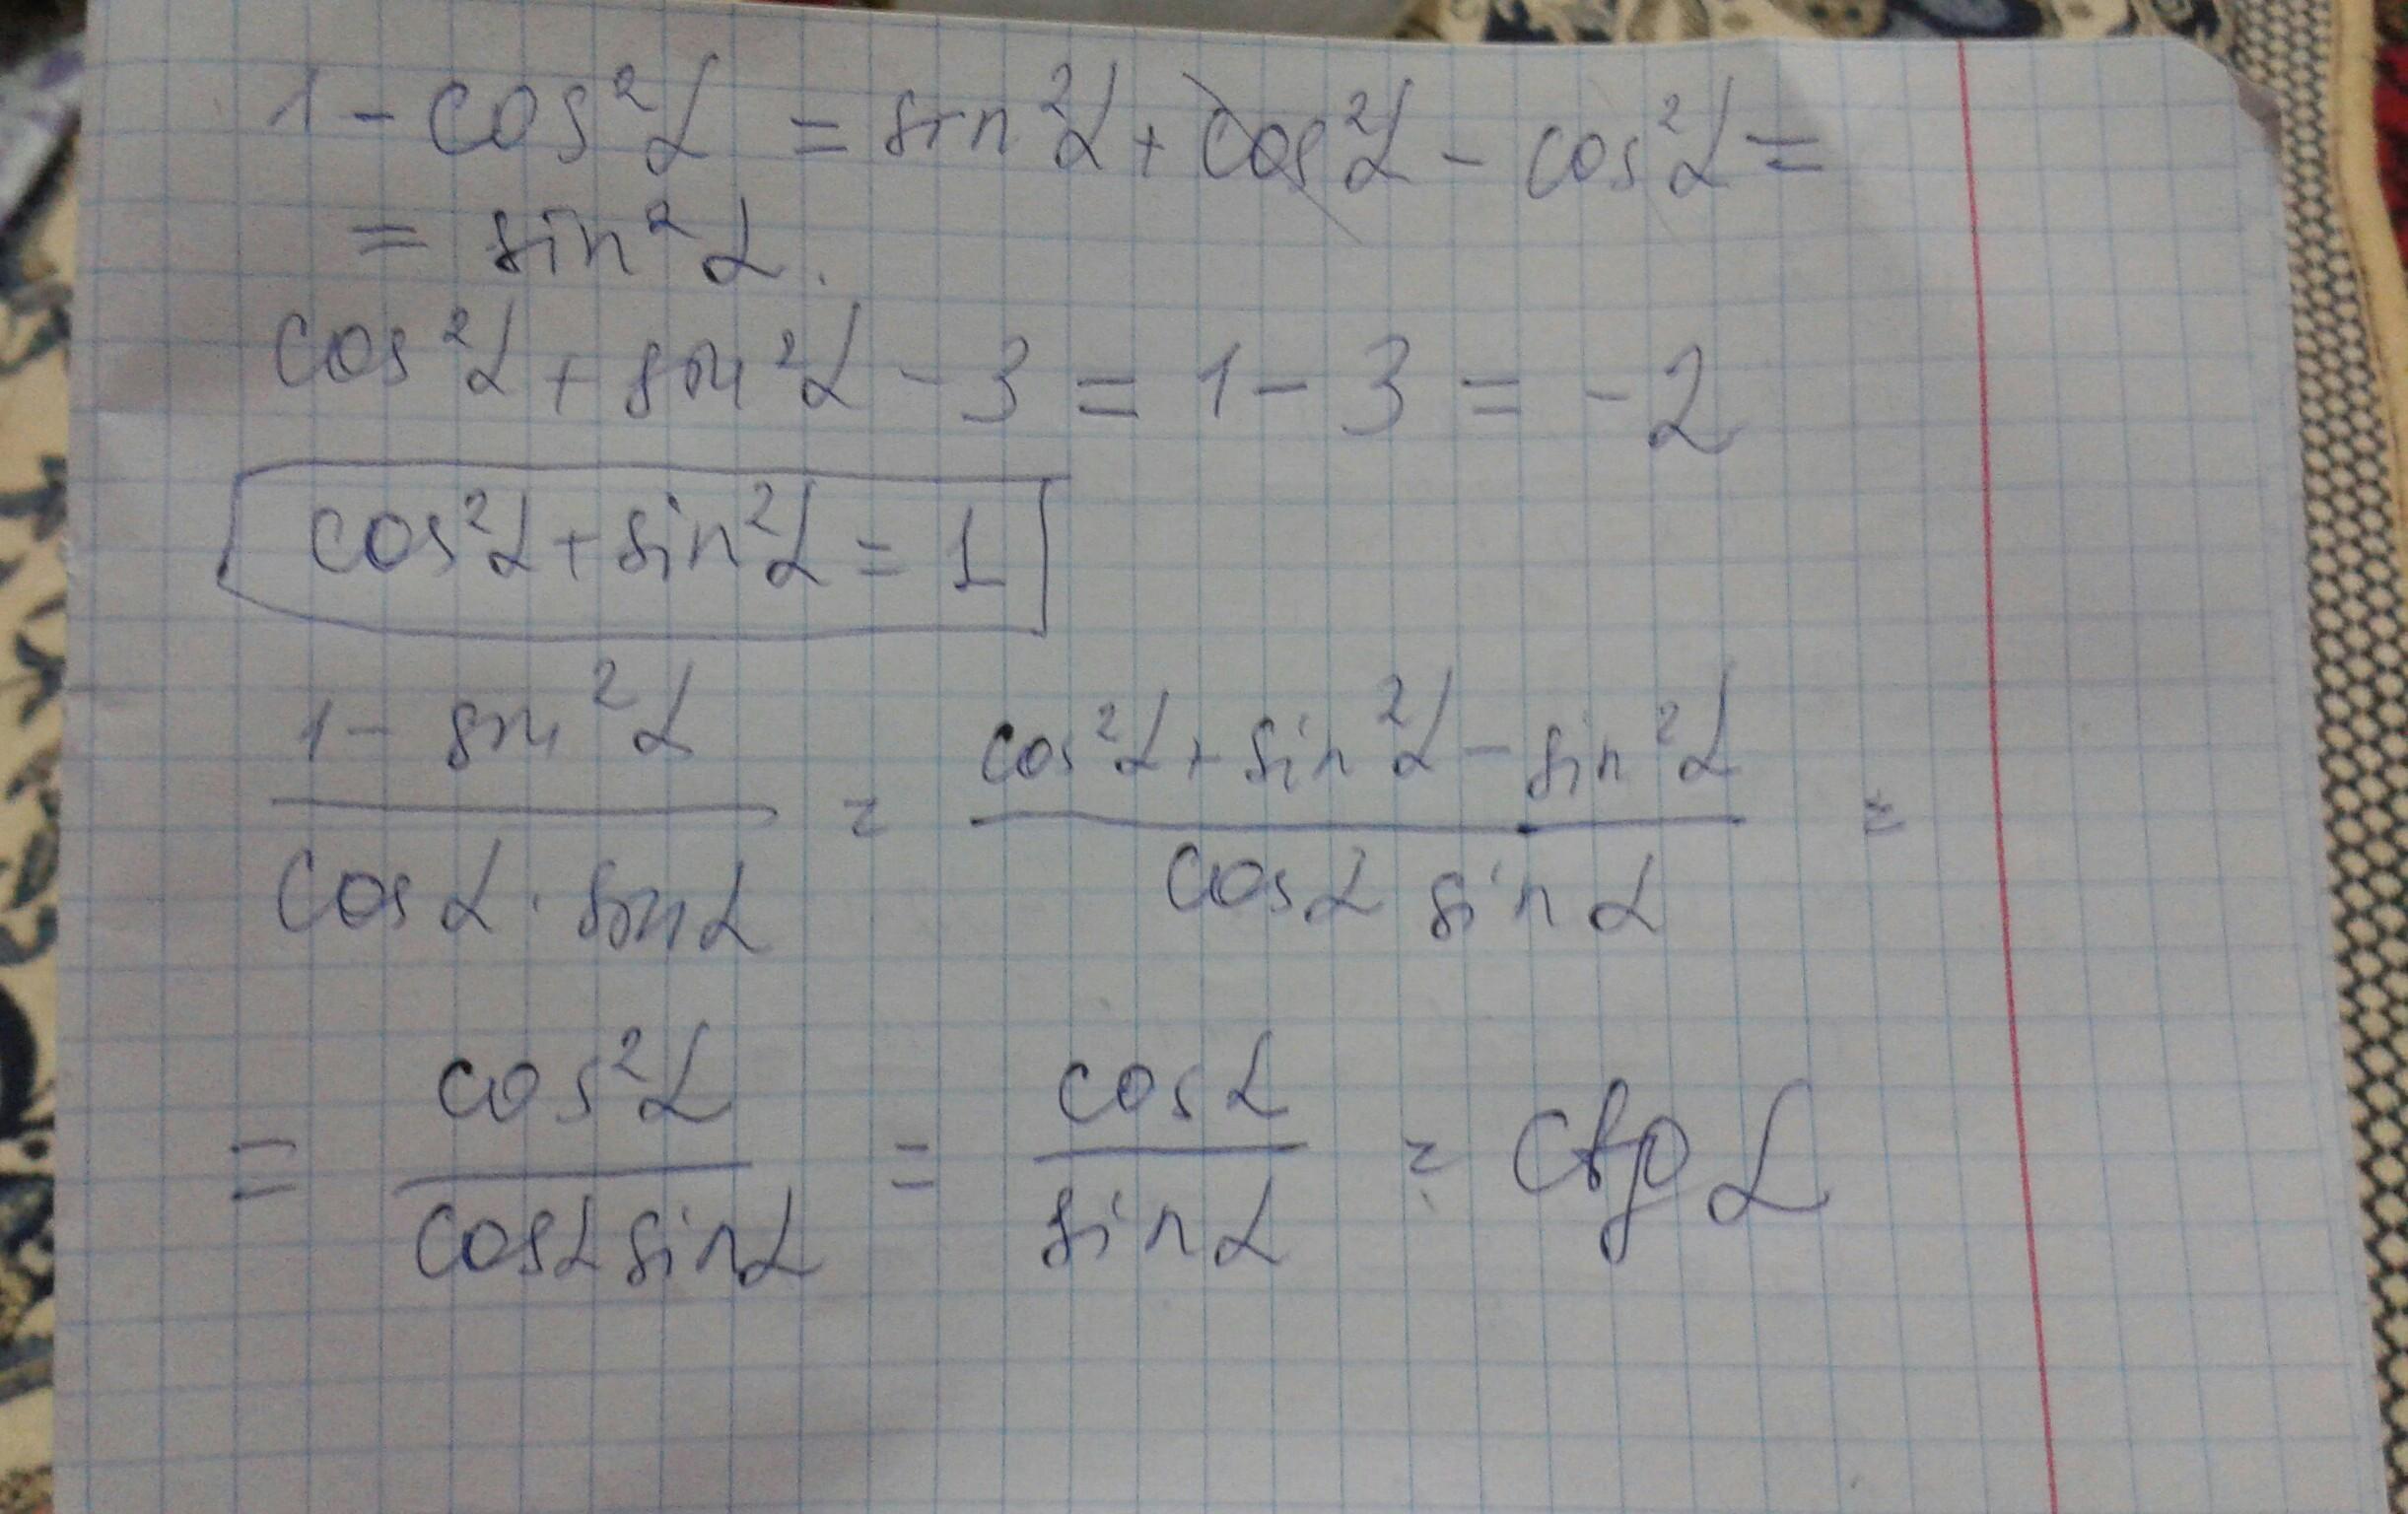 1 - cos²α = sin²α + cos²α - cos²α =
= sin²α.
cos²α + sin²α - 3 = 1 - 3 = -2
cos²α + sin²α = 1
1 - sin²α / cos α · sin α = cos²α + sin²α - sin²α / cos α sin α =
= cos²α / cos α sin α = cos α / sin α = ctg α